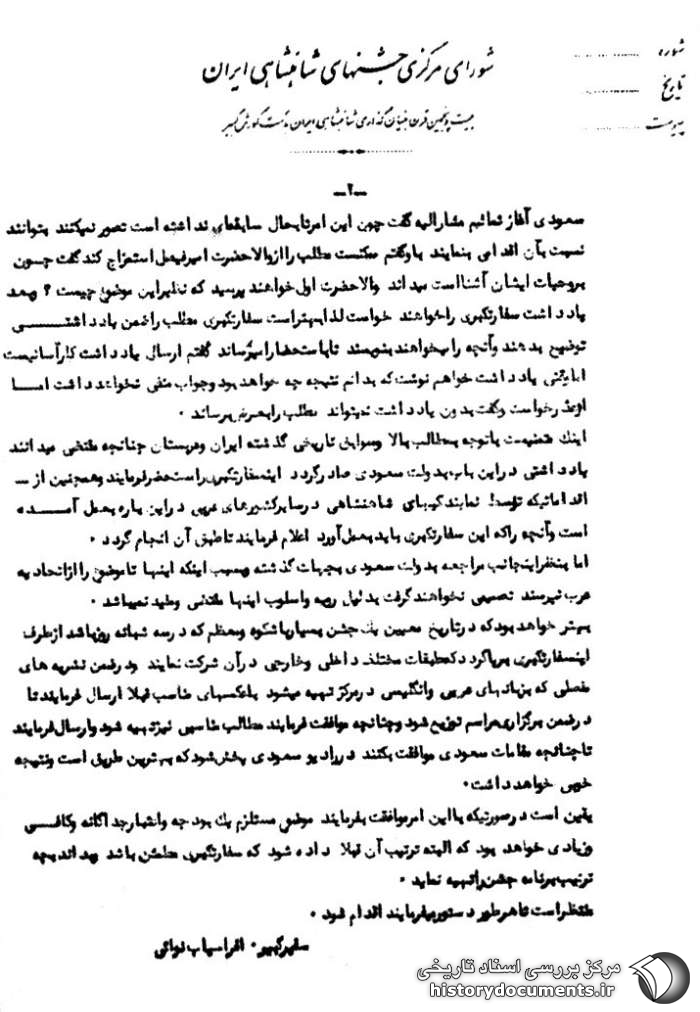 شماره
تاریخ
پیوست
شورای مرکزی جشنهای شاهنشاهی ایران
بیست و پنجمین قرن بنیان گذاری شاهنشاهی ایران بدست کورش کبیر
ـ۲ـ
سعودی آغاز نمائیم مشارالیه گفت چون این امر تابحال سابقه‌ای نداشته است تصور نمیکنند بتوانند
نسبت بآن اقدامی بنمایند باو گفتم ممکنست مطلب را از والاحضرت امیر فیصل استمزاج کند گفت چون
بروحیات ایشان آشنا است میداند والاحضرت اول خواهند پرسید که نظیر این موضوع چیست ؟ و بعد
یادداشت سفارتکبری را خواهند خواست لذا بهتر است سفارتکبری مطلب را ضمن یادداشتی
توضیح بدهند و آنچه را میخواهند بنویسند تا باستحضار برساند گفتم ارسال یادداشت کار آسانیست
اما وقتی یادداشت خواهم نوشت که بدانم نتیجه چه خواهد بود و جواب منفی نخواهد داشت اما
او عذر خواست و گفت بدون یادداشت نمیتواند مطلب را بعرض برساند ۰
اینک با توجه بمطالب بالا و سوابق تاریخی گذشته ایران و عربستان چنانچه مقتضی میدانند
یادداشتی در این باب بدولت سعودی صادر گردد اینسفارتکبری را مستحضر فرمایند و همچنین از ــ
اقداماتیکه توسط نمایندگیهای شاهنشاهی در سایر کشورهای عربی در این باره بعمل آمده
است و آنچه را که این سفارتکبری باید بعمل آورد اعلام فرمایند تا طبق آن انجام گردد ۰
اما بنظر اینجانب مراجعه بدولت سعودی بجهات گذشته و بسبب اینکه اینها تا موضوع را از اتحادیه
عرب نپرسند تصمیمی نخواهند گرفت بدلیل رویه و اسلوب اینها مقتضی و مفید نمیباشد ۰
بهتر خواهد بود که در تاریخ معین یک جشن بسیار باشکوه و معظم که در سه شبانه روز باشد از طرف
اینسفارتکبری برپا گردد که طبقات مختلف داخلی و خارجی در آن شرکت نمایند و در ضمن نشریه های
مفصلی که بزبانهای عربی و انگلیسی در مرکز تهیه میشود با عکسهای مناسب قبلا ارسال فرمایند تا
در ضمن برگزاری مراسم توزیع شود و چنانچه موافقت فرمایند مطالب مناسبی نیز تهیه شود و ارسال فرمایند
تا چنانچه مقامات سعودی موافقت بکنند در رادیو سعودی پخش شود که بهترین طریق است و نتیجه
خوبی خواهد داشت۰
یقین است در صورتیکه با این امر موافقت بفرمایند موضوع مستلزم یک بودجه و اعتبار جداگانه و کافی
و زیادی خواهد بود که البته ترتیب آن قبلا داده شود که سفارتکبری مطمئن باشد و بداند بچه
ترتیب برنامه جشن را تهیه نماید ۰
منتظر است تا هر طور دستور میفرمایند اقدام شود ۰
سفیر کبیر ۰ افراسیاب نوائی
مرکز بررسی اسناد تاریخی
historydocuments.ir